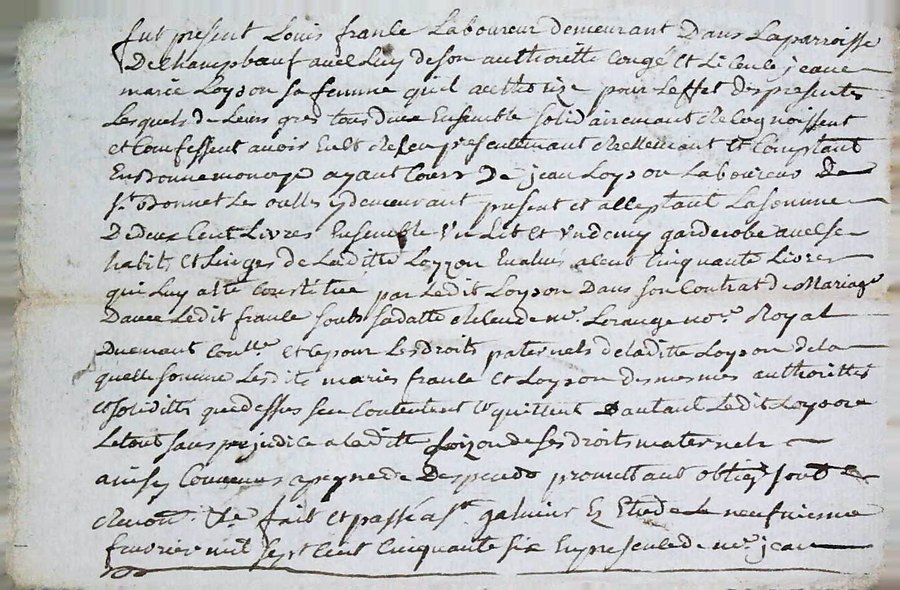 fut présent Louis franle Laboureur demeurant Dans La parroisse
De champbœuf avec Luy de son authoritté congé et Licence jeane
marie Loyson sa femme qu'il authorize pour Leffet des presentes
Lesquels de Leurs grés tous deux Ensemble solidairemant Recognoissent
et Confessent avoir Eu et Receu presentemant Reellemant et Comptant
En bonne monoye ayant Cours De jean Loyson Laboureur de
st. Bonnet Le oulles y demeurant present et acceptant La somme
De deux Cent Livres Ensemble Un Lit et Un demy garderobe avec se
habits et Linges de Laditte Loyzon Evalus a Cent Cinquante Livres
qui Luy a ete Constitué par Ledit Loyson Dans son Contrat de Mariage
Davec Ledit franle soubs sa datte Receu de me. Lorange nore. Royal
Duemant Conllé. et Ce pour Les droits paternels de laditte Loyson de la
quelle somme Lesdits mariés franle et Loyson des mesmes authorittés
et soliditté que dessus sen Contentent et quittent Dautant Ledit Loyson
Le tout sans prejudice a laditte Loizon de ses droits maternels
ainsy Convenus a peyne de Despends promettant oblig. soub.
Renon. Ce fait et passé a st. galmier Ez Etude Le neufvieme
fevrier mil sept cent Cinquante six En presence de me. jean